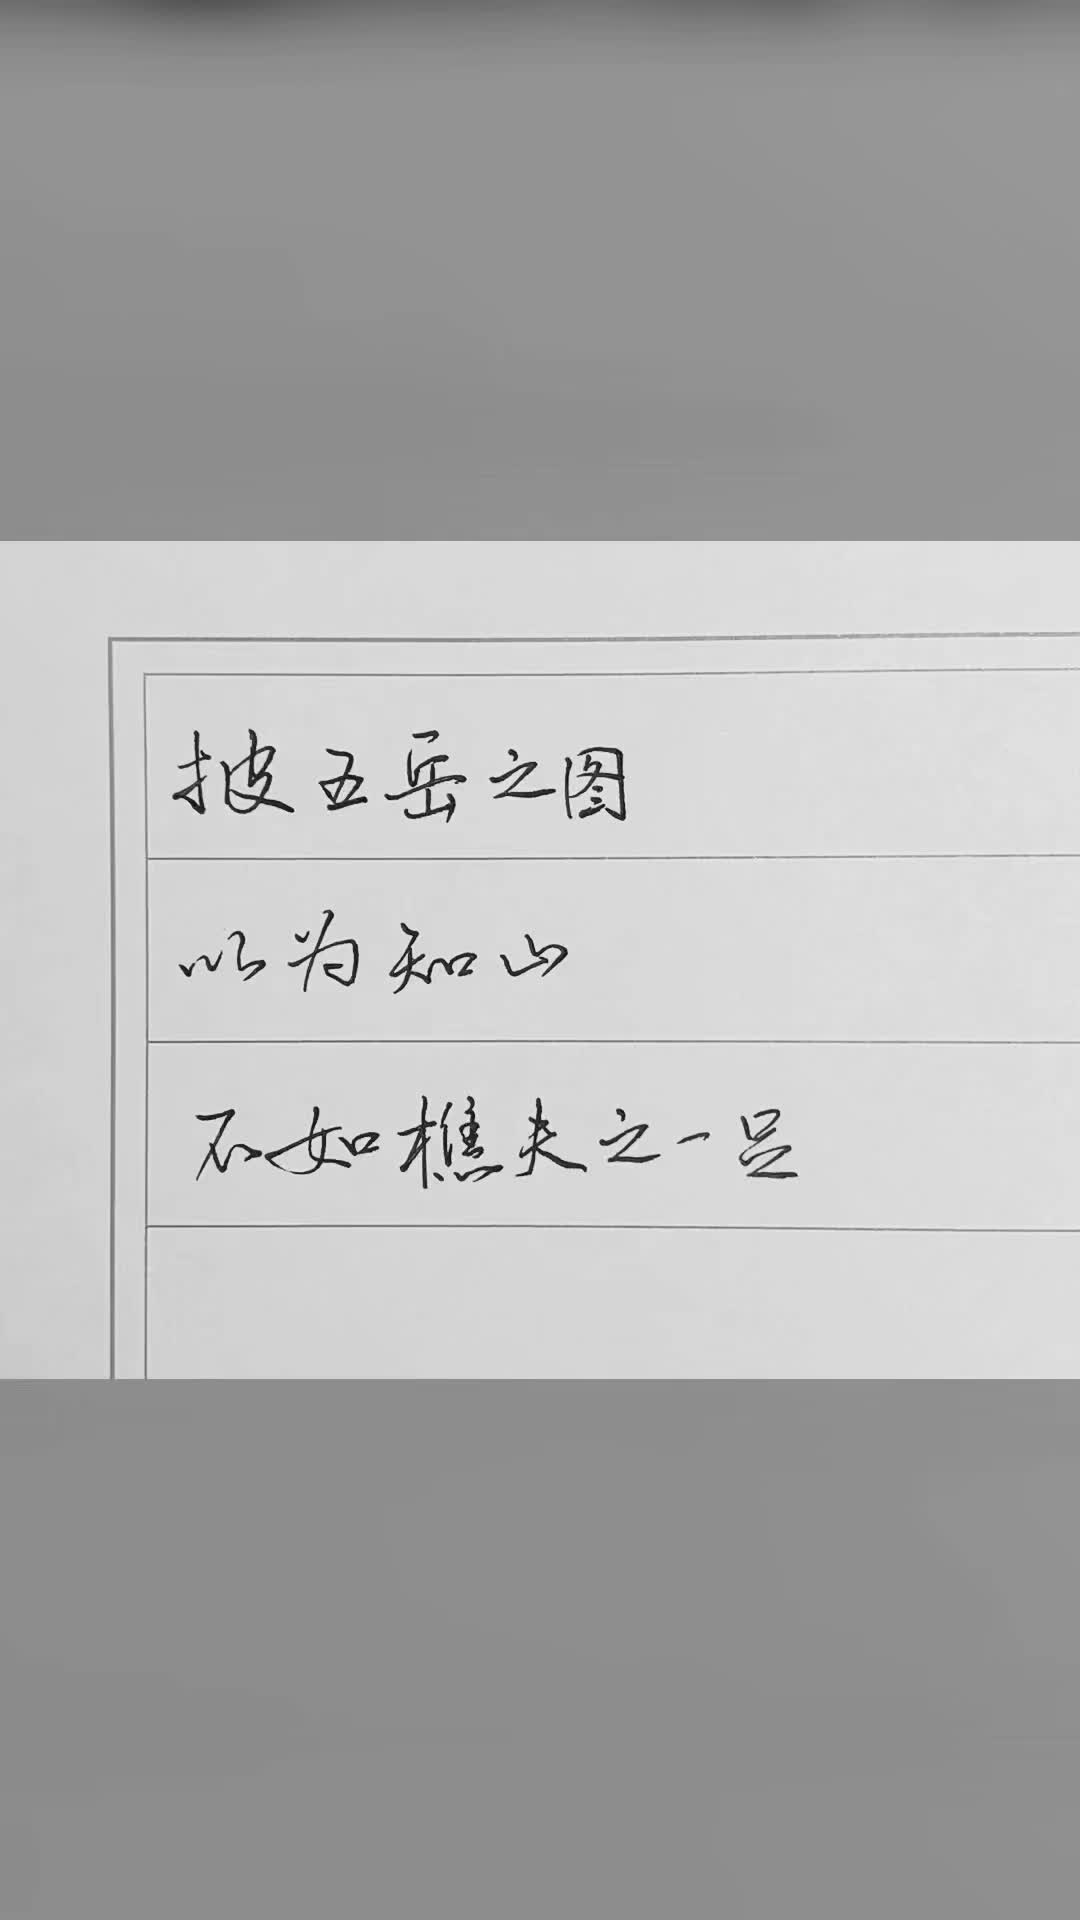 披五岳之图
以为知山
不如樵夫之一足